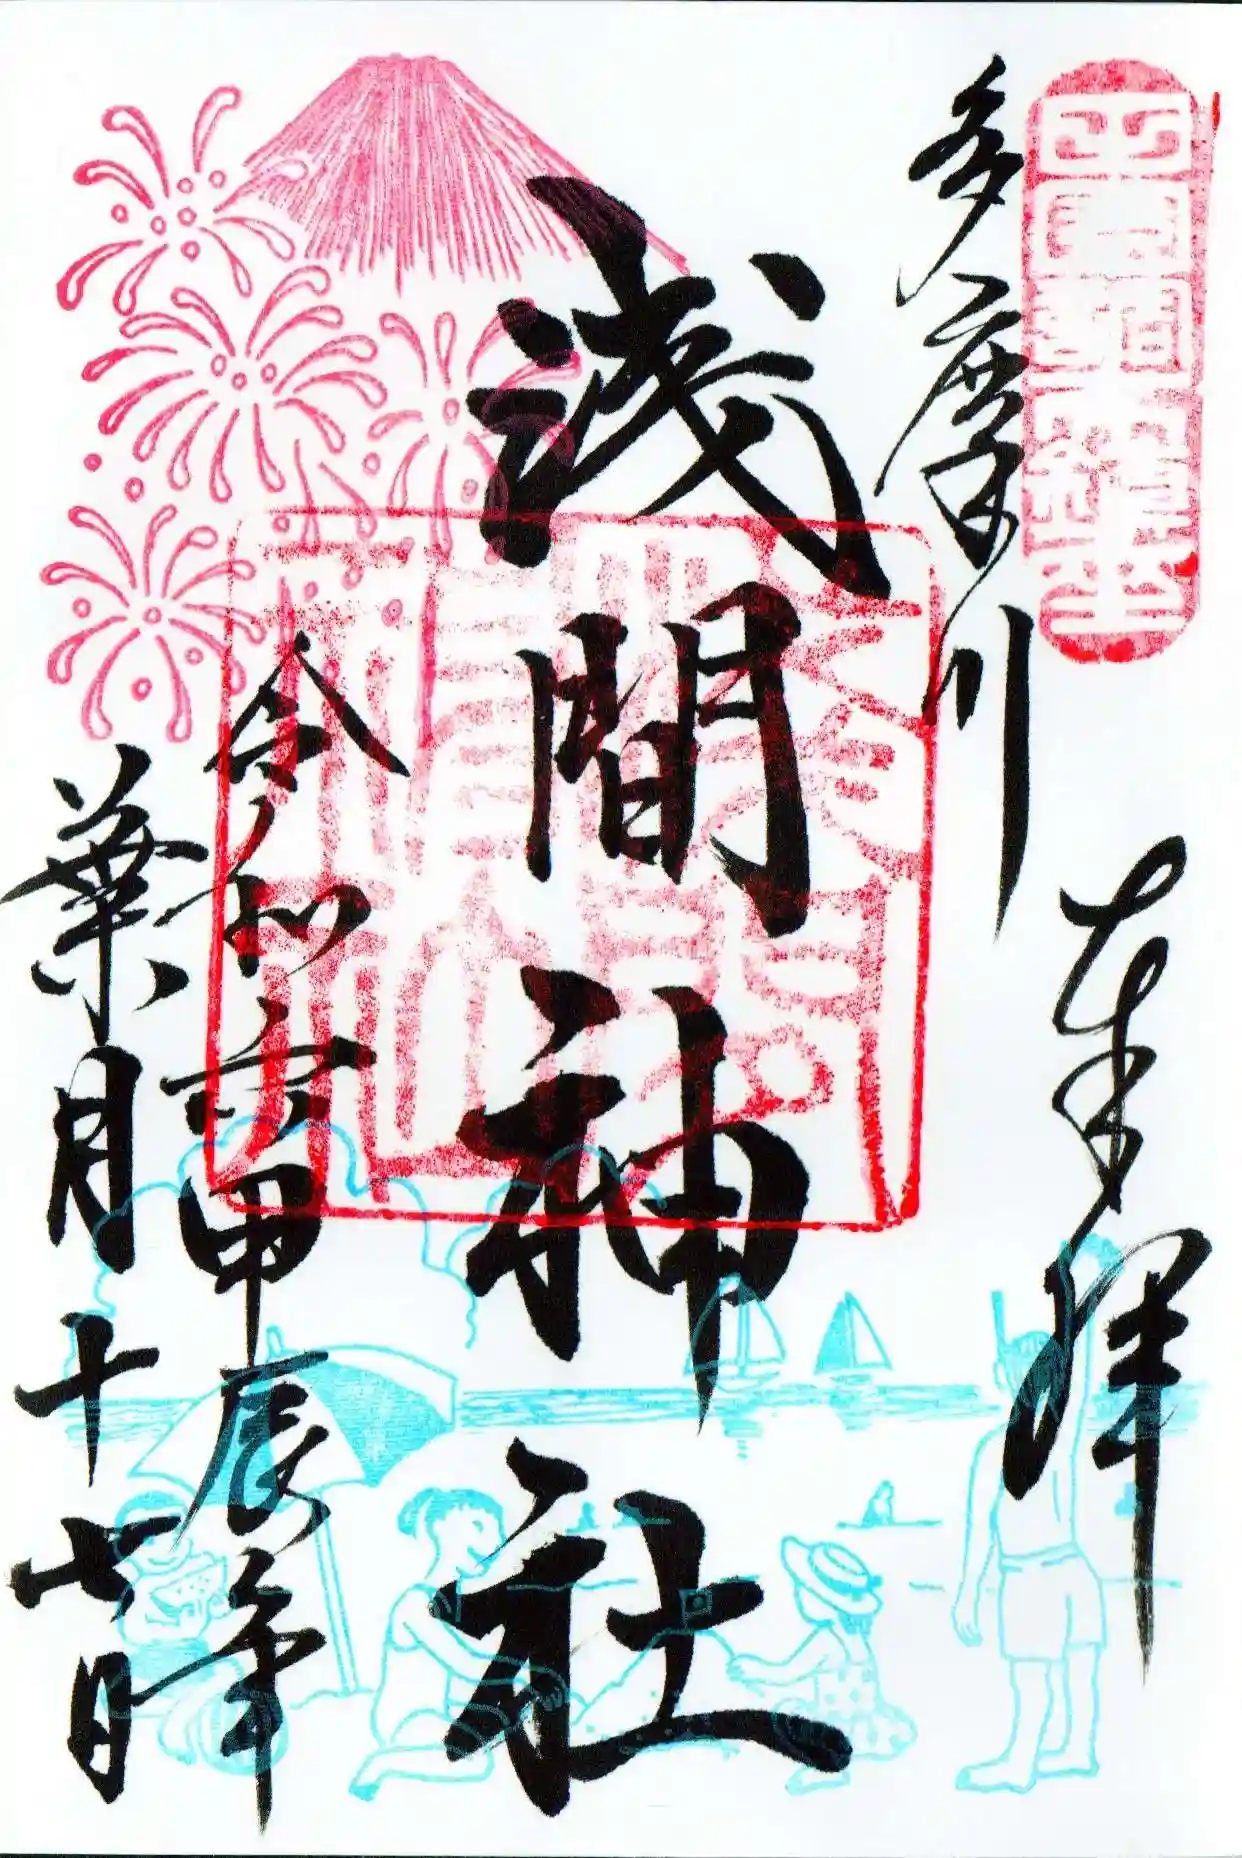 奉拝
多摩川
浅間神社
令和六甲辰年
葉月十七日